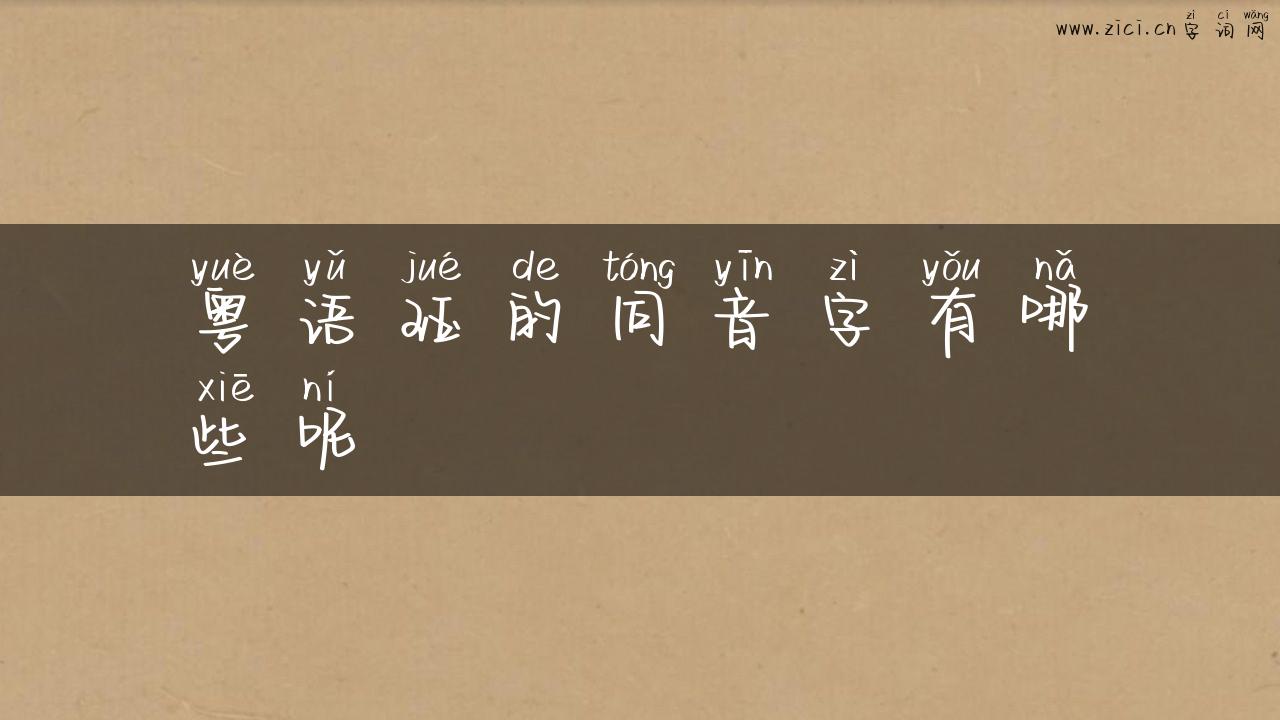 www.zici.cn zì cí wǎng
字词网
yuè yǔ jué de tóng yīn zì yǒu nǎ
粤语珏的同音字有哪
xiē ní
些呢